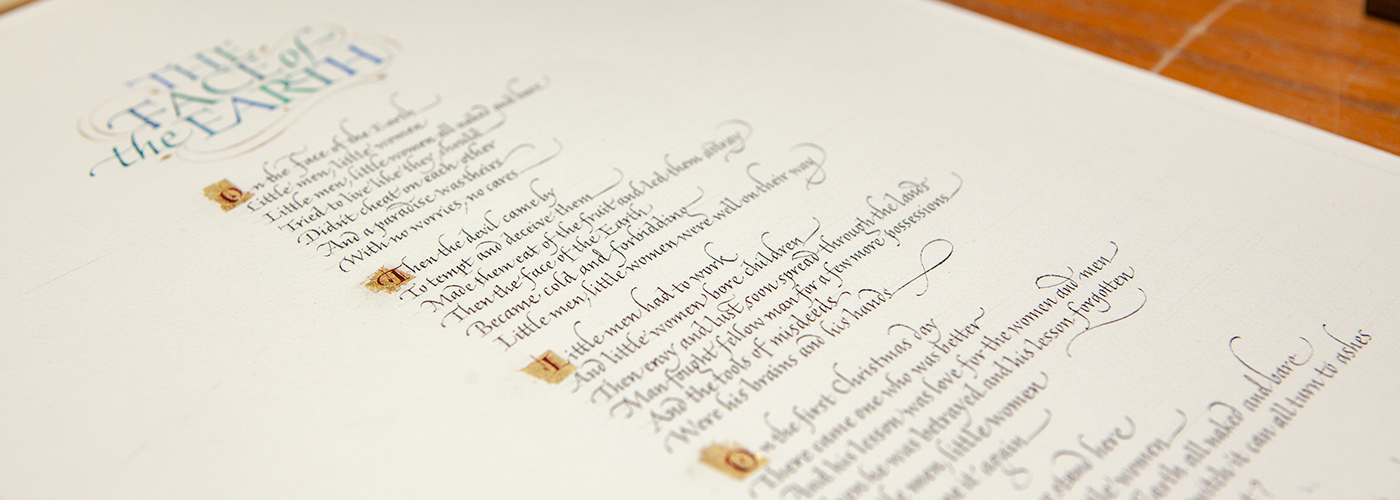 THE
FACE of
the EARTH
On the Face of the Earth
Little men, little women
Little men, little women, all naked and bare
Tried to live like they should
Didn't cheat on each other
And a paradise was theirs
(With no worries, no cares
Then the devil came by
To tempt and deceive them
Made them eat of the fruit and led them astray
Then the face of the Earth
Became cold and forbidding
Little men, little women were well on their way
Little men had to work
And little women bore children
Then envy and lust soon spread through the lands
Man fought fellow man for a few more possessions
And the tools of misdeeds
Were his brains and his hands
On the first Christmas day
There came one who was better
And his lesson was love for the women and men
he was betrayed and his lesson forgotten
men, little women
it again
stand here
women
Earth all naked and bare
with it can all turn to ashes